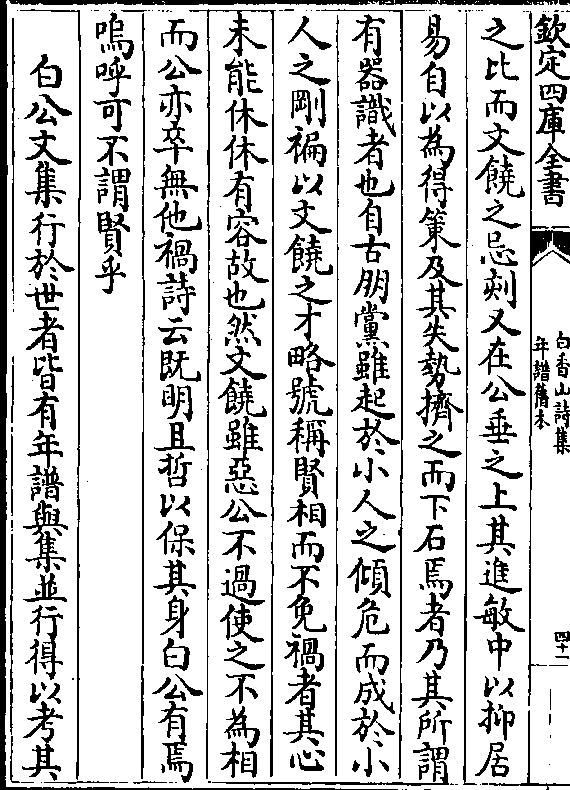 欽定四庫全書
白香山詩集
年譜舊本
四十一
之比而文饒之忌刻又在公垂之上其進敏中以抑居
易自以為得策及其失勢擠之而下石焉者乃其所謂
有器識者也自古朋黨雖起於小人之傾危而成於小
人之剛褊以文饒之才略號稱賢相而不免禍者其心
未能休休有容故也然文饒雖惡公不過使之不為相
而公亦卒無他禍詩云既明且哲以保其身白公有焉
嗚呼可不謂賢乎
白公文集行於世者皆有年譜與集並行得以考其